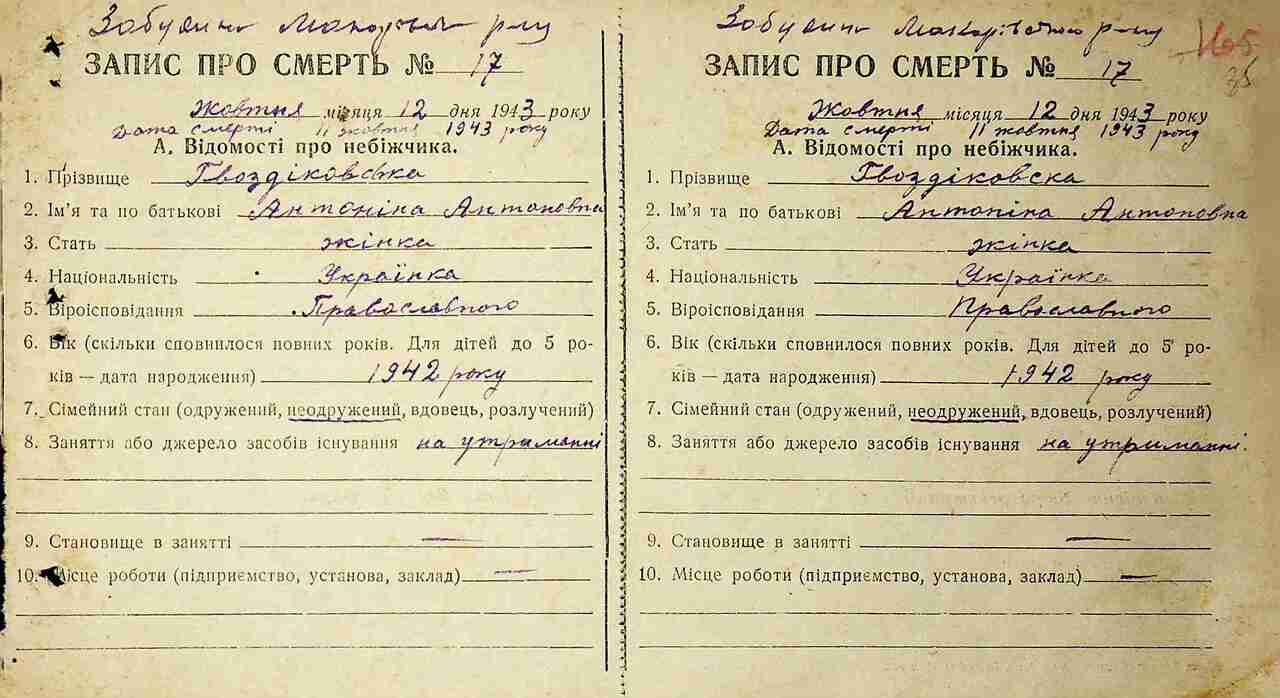 Забуяння Макарівськ р-ну
ЗАПИС ПРО СМЕРТЬ № 17
Жовтня місяця 12 дня 1943 року
Дата смерті 11 жовтня 1943 року
А. Відомості про небіжчика.
1. Прізвище Гвоздіковська
2. Ім'я та по батькові Антоніна Антоновна
3. Стать жінка
4. Національність Українка
5. Віроісповідання Православного
6. Вік (скільки сповнилося повних років. Для дітей до 5 ро-
ків — дата народження) 1942 року
7. Сімейний стан (одружений, неодружений, вдовець, розлучений)
8. Заняття або джерело засобів існування на утриманні
9. Становище в занятті —
10. Місце роботи (підприємство, установа, заклад) —
Забуяння Макарівського р-ну
165
35
ЗАПИС ПРО СМЕРТЬ № 17
Жовтня місяця 12 дня 1943 року
Дата смерті 11 жовтня 1943 року
А. Відомості про небіжчика.
1. Прізвище Гвоздіковска
2. Ім'я та по батькові Антоніна Антоновна
3. Стать жінка
4. Національність Українка
5. Віроісповідання Православного
6. Вік (скільки сповнилося повних років. Для дітей до 5 ро-
ків — дата народження) 1942 року
7. Сімейний стан (одружений, неодружений, вдовець, розлучений)
8. Заняття або джерело засобів існування на утриманні.
9. Становище в занятті —
10. Місце роботи (підприємство, установа, заклад) —